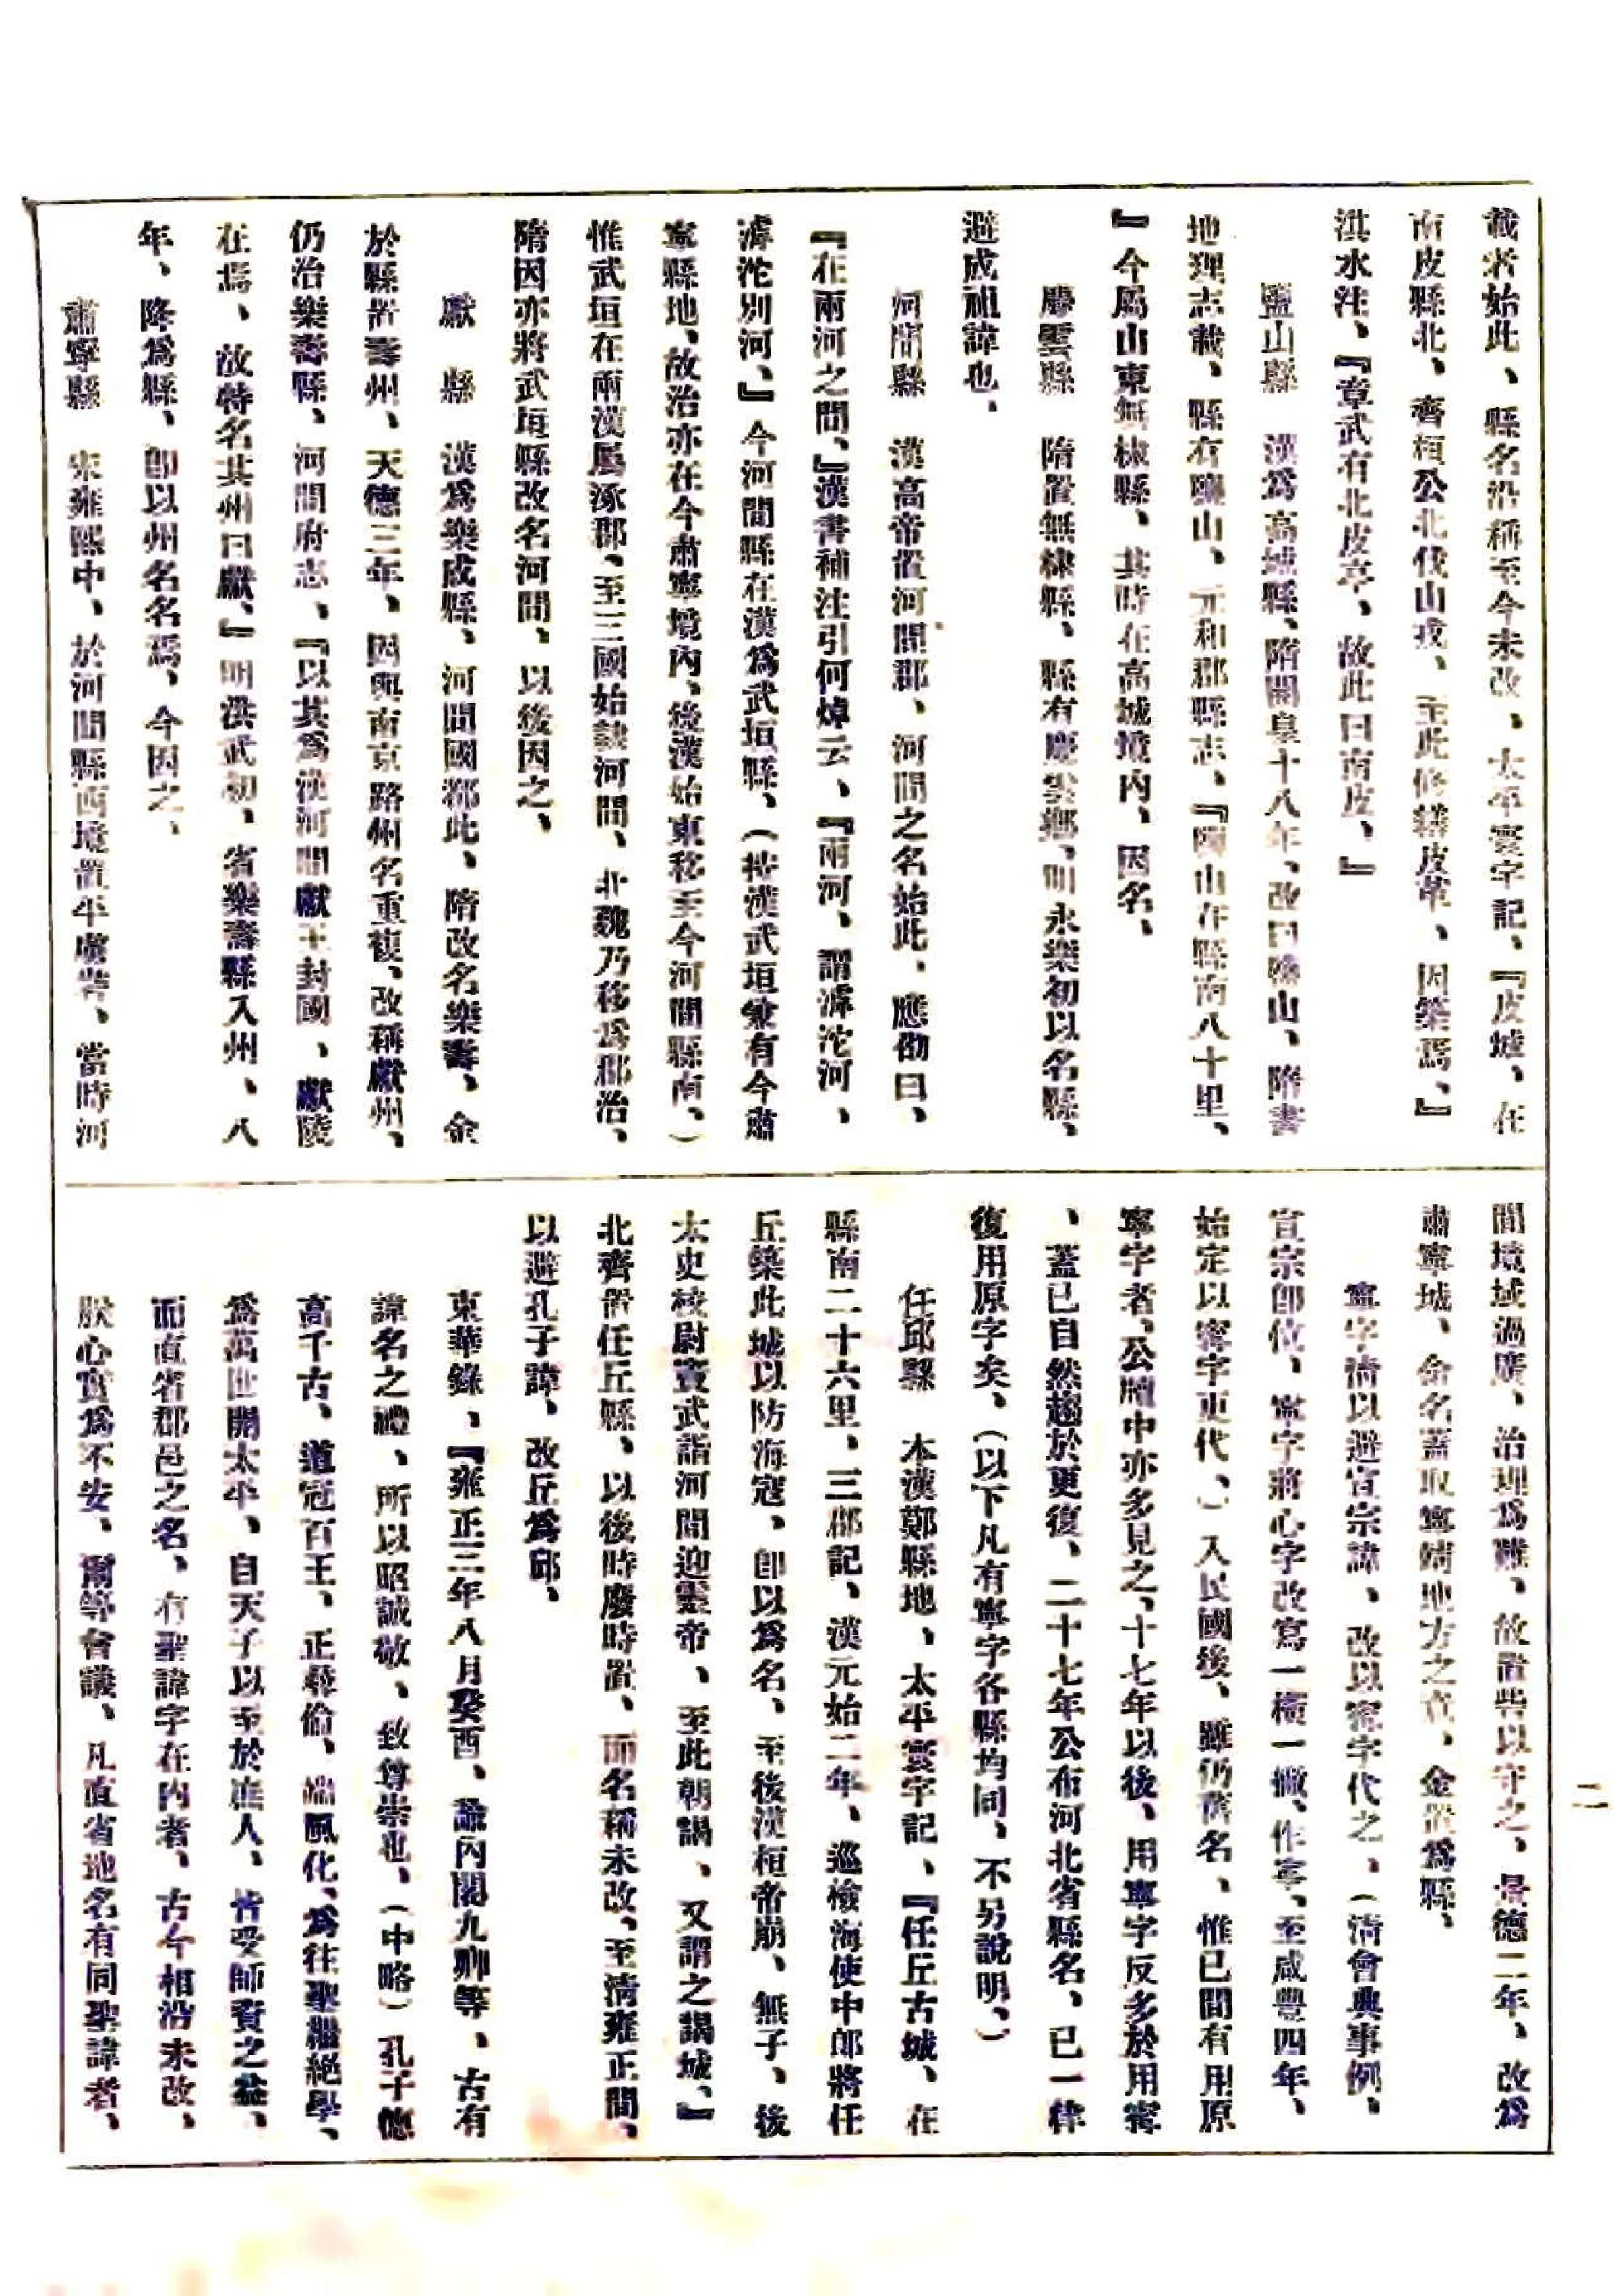 載者始此、縣名沿稱至今未改、太平寰宇記、『皮城、在
南皮縣北、齊桓公北伐山戎、至此修繕皮革、因築焉、』
洪水注、『章武有北皮亭、故此曰南皮、』
鹽山縣　漢爲高城縣、隋開皇十八年、改曰鹽山、隋書
地理志載、縣有鹽山、元和郡縣志、『鹽山在縣南八十里、
』今屬山東無棣縣、其時在高城境內、因名、
慶雲縣　隋置無棣縣、縣有慶雲鄉、明永樂初以名縣、
避成祖諱也、
河間縣　漢高帝置河間郡、河間之名始此、應劭曰、
『在兩河之間、』漢書補注引何焯云、『兩河、謂滹沱河、
滹沱別河、』今河間縣在漢爲武垣縣、（按漢武垣兼有今肅
寧縣地、故治亦在今肅寧境內、後漢始東移至今河間縣南、）
惟武垣在兩漢屬涿郡、至三國始隸河間、北魏乃移爲郡治、
隋因亦將武垣縣改名河間、以後因之、
獻　縣　漢爲樂成縣、河間國都此、隋改名樂壽、金
於縣置壽州、天德三年、因與南京路州名重複、改稱獻州、
仍治樂壽縣、河間府志、『以其爲漢河間獻王封國、獻陵
在焉、故特名其州曰獻、』明洪武初、省樂壽縣入州、八
年、降爲縣、卽以州名名焉、今因之、
肅寧縣　宋雍熙中、於河間縣西境置平虜砦、當時河
間境域過廣、治理爲難、故置砦以守之、景德二年、改爲
肅寧城、命名蓋取寧靖地方之意、金置爲縣、
寧字清以避宣宗諱、改以甯字代之、（清會典事例、
宣宗卽位、寧字將心字改寫一橫一撇、作寍、至咸豐四年、
始定以甯字更代、）入民國後、雖仍舊名、惟已間有用原
寧字者、公牘中亦多見之、十七年以後、用寧字反多於用甯
、蓋已自然趨於更復、二十七年公布河北省縣名、已一律
復用原字矣、（以下凡有寧字各縣均同、不另說明、）
任邱縣　本漢鄚縣地、太平寰宇記、『任丘古城、在
縣南二十六里、三郡記、漢元始二年、巡檢海使中郎將任
丘築此城以防海寇、卽以爲名、至後漢桓帝崩、無子、後
太史校尉竇武詣河間迎靈帝、至此朝謁、又謂之謁城、』
北齊置任丘縣、以後時廢時置、而名稱未改、至淸雍正間、
以避孔子諱、改丘爲邱、
東華錄、『雍正三年八月癸酉、諭內閣九卿等、古有
諱名之禮、所以昭誠敬、致尊崇也、（中略）孔子德
高千古、道冠百王、正彝倫、端風化、爲往聖繼絕學、
爲萬世開太平、自天子以至於庶人、皆受師資之益、
而直省郡邑之名、有聖諱字在內者、古今相沿未改、
朕心實爲不安、爾等會議、凡直省地名有同聖諱者、
二